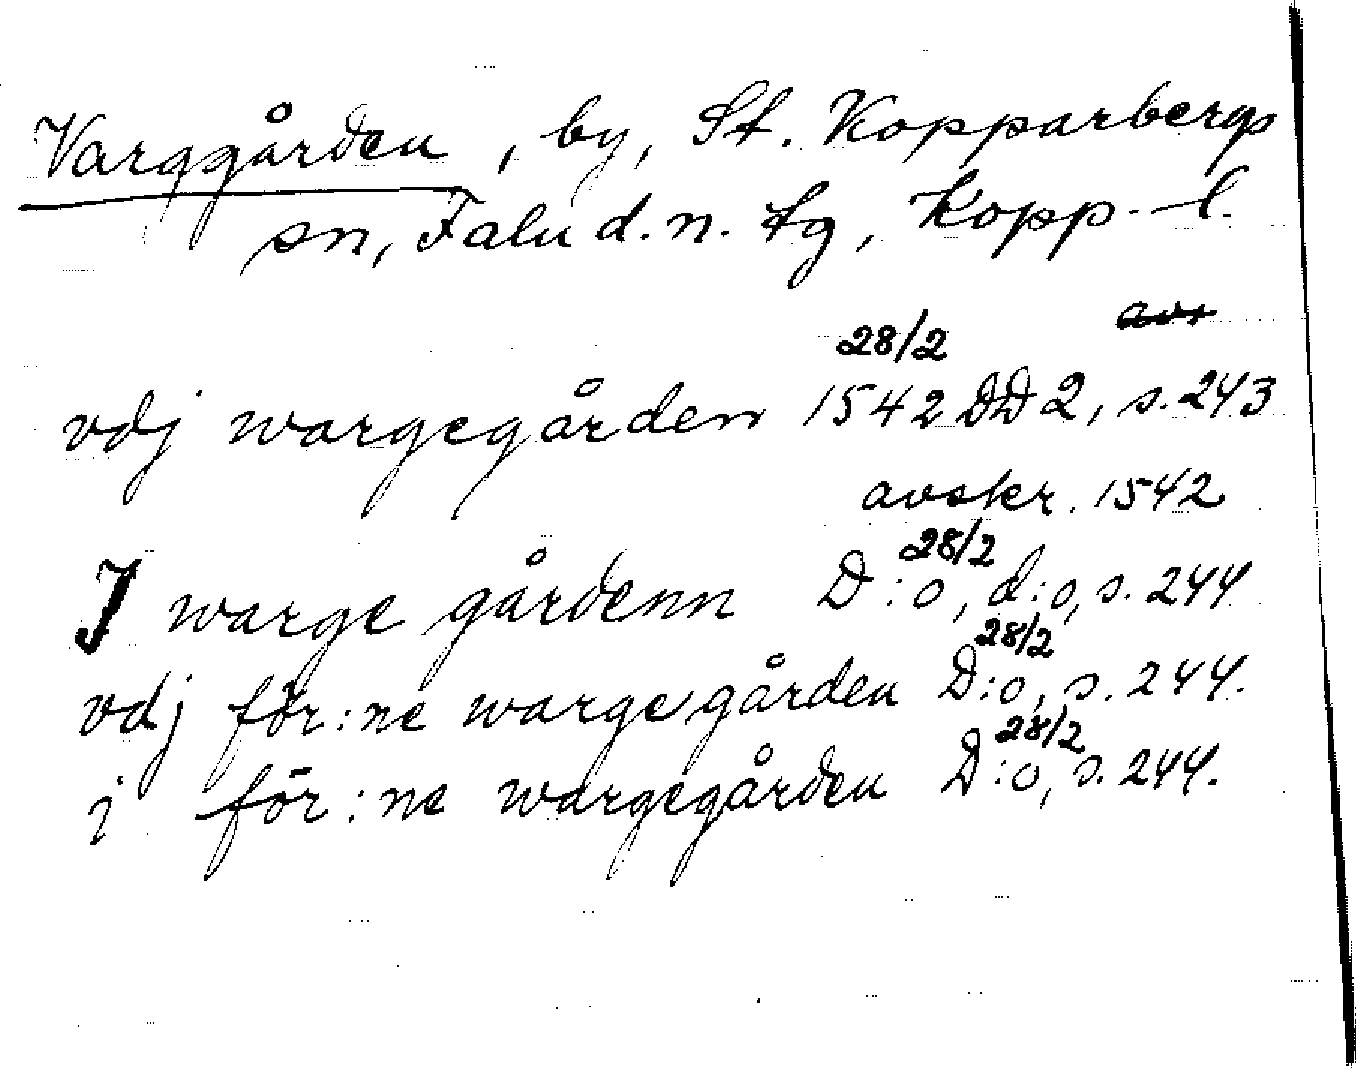 Varggården, by, St. Kopparbergs
sn, Falu d. n. tg, Kopp. l.
28/2
vdj wargegården 1542 DD2, s. 243
avskr. 1542
28/2
J warge gårdenn D:o, d:o, s. 244
28/2
vdj för:ne wargegården D:o, s. 244.
28/2
j för:ne wargegården D:o, s. 244.